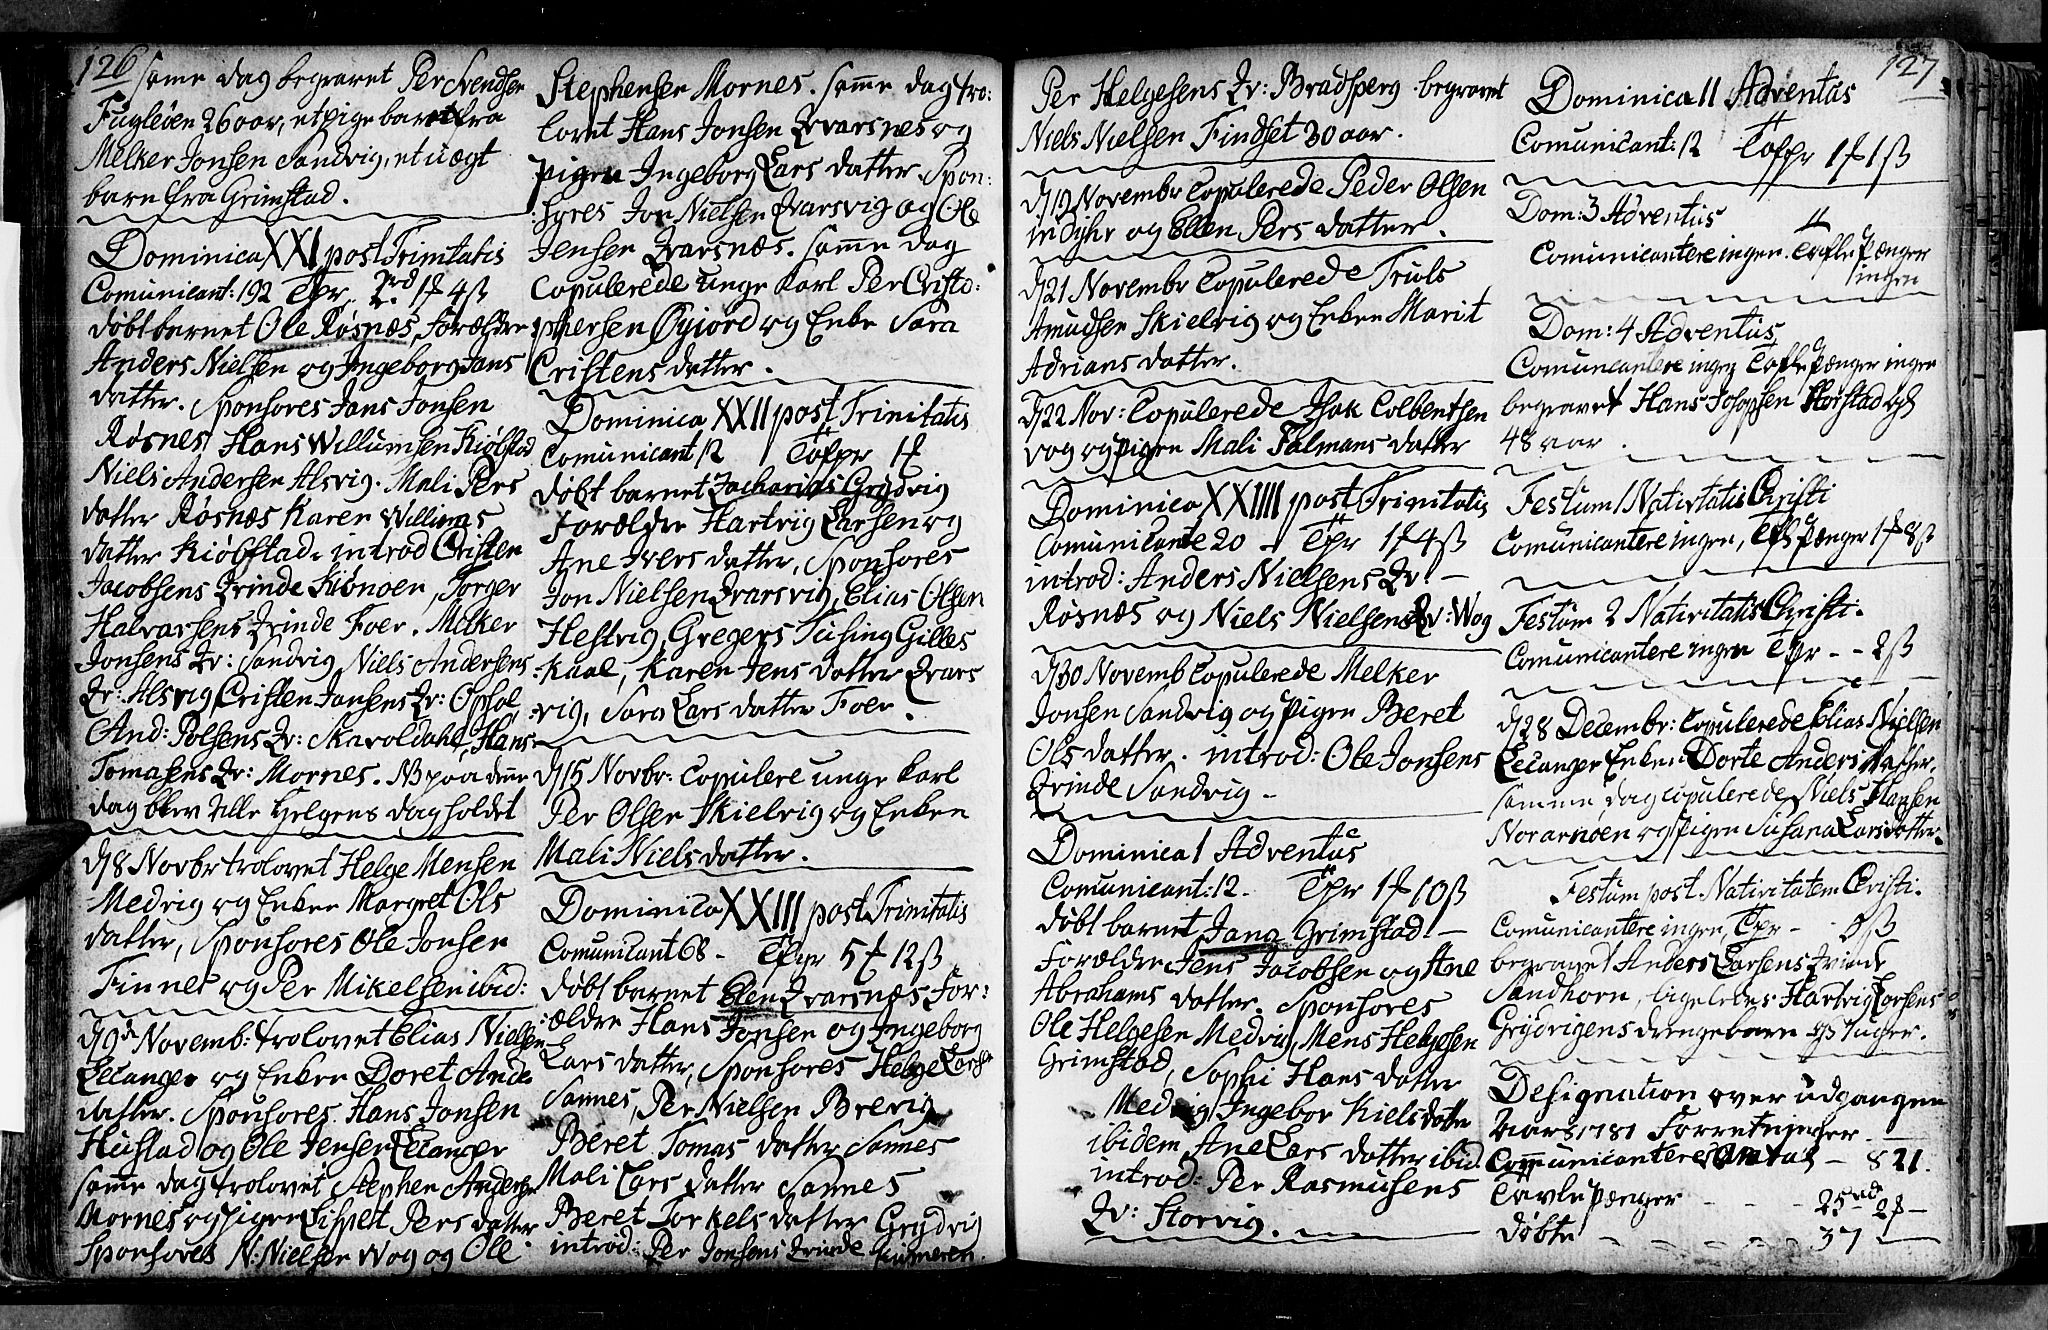 126
same dag begravet Per Svendsen
Fugløen 26 aar, et pige barn fra
Melker Jonsen Sandvig, et uægt
barn fra Grimstad.
Dominica XXI post Trinitatis
Comunicant: 192 Tpr. 2rd 1f 4ß
døbt barnet Ole Røsnæs, forældre
Anders Nielsen og Ingeborg Jans
datter. Sponsores Jans Jonsen
Røsnes, Hans Willumsen Kiølstad
Niels Andersen Alsvig. Mali Pers
datter Røsnæs Karen Willums
datter Kiølstad. introd Cristen
Jacobsens Qvinde, Torger
Halvarsens Qvinde Foer. Melker
Jonsens Qv: Sandvig Niels Andersens
Qv: Alsvig Cristen Jansens Qv: Ophol
And: Polsens Qv: Skavoldahl, Hans
Tomasens Qv: Mornes. NB paa denne
dag blev Alle Helgens dag holdet
d 8 Novbr trolovet Helge Mensen
Medvig og Enken Margret Ols
datter, Sponsores Ole Jonsen
Finnes og Per Mikelsen ibid:
d 9de Novemb: trolovet Elias Nielsen
Lecanger og Enken Doret Ande
datter. Sponsores Hans Jonsen
Hustad og Ole Jensen Lecanger
same dag trolovet Stephen Andersen
Mornes og pigen Lisbet Pers datter
Sponsores N: Nielsen Wog og Ole
Stephensen Mornes. same dag tro:
lovet Hans Jonsen Qvarsnes og
pigen Ingeborg Lars datter. Spon:
sores Jon Nielsen Qvarsvig og Ole
Jensen Qvarsnæs. same dag
Copulerede unge Karl Per Cristo:
phersen Øyjord og Enke Sara
Cristens datter.
Dominica XXII post Trinitatis
Comunicant 12 Tafpr 1f
døbt barnet Zacharias Grydvig
Forældre Hartvig Larsen og
Ane Ivers datter, Sponsores
Jon Nielsen Qvarsvig, Elias Olsen
Hestvig, Gregers Tusing Gilles
kaal, Karen Jens datter Qvars
vig, Sara Lars datter Foer.
d 15 Novbr: Copulere unge Karl
Per Olsen Skielvig og Enken
Mali Niels datter.
Dominica XXIII post Trinitatis
Comunicant 68 - Tafpr 5f 12ß
døbt barnet Elen Qvarsnæs For:
ældre Hans Jonsen og Ingeborg
Lars datter, Sponsores Helge Larsen
Sannes, Per Nielsen Brevig
Beret Tomas datter Sannes
Mali Lars datter Sannes
Beret Torkels datter Grydvig
introd: Per Jonsens Qvinde
127
Per Helgesens Qv: Bradsperg begravet
Niels Nielsen Findset 30 aar.
d 19 Novembr Copulerede Peder Olsen
Indyhr og Ellen Pers datter.
d 21 Novembr Copulerede Truls
Amudsen Skielvig og Enken Marit
Adrians datter.
d 22 Nov: Copulerede Isak Colbentsen
vog og pigen Mali Falmans datter
Dominica XXIIII post Trinitatis
Comunicante 20 - Tpr 1f 4ß
introd: Anders Nielsens Qv: -
Røsnæs og Niels Nielsens Qv: Wog
d 30 Novemb Copulerede Melker
Jonsen Sandvig og pigen Beret
Ols datter. introd: Ole Jonsens
Qvinde Sandvig -
Dominica 1 Adventus
Comunicant: 12 - Tpr 1f 10ß
døbt barnet Jana Grimstad -
Forældre Jens Jacobsen og Ane
Abrahams datter. Sponsores
Ole Helgesen Medvig, Mens Helgesen
Grimstad, Sophi Hans datter
Medvig Ingebor Kiels datter
ibidem, Ane Lars datter ibid.
introd: Per Rasmusens
Qv: Storvig.
Dominica II Adventus
Comunicant: 12 Tafpr 1f 1ß
Dom: 3 Adventus
Comunicantere ingen. Tafle Pænger
ingen
Dom: 4 Adventus
Comunicantere ingen Tafle Pænger ingen
begravet Hans Josopsen Horstad
48 aar.
Festum 1 Nativitatis Christi
Comunicantere ingen, Tafl Pænger 1f 8ß
Festum 2 Nativitatis Christi.
Comunicantere ingen Tpr - - 2ß
d 28 Decembr: Copulerede Elias Nielsen
Lecanger Enken Dorte Anders datter,
samme dag copulerede Niels Hansen
Norarnøen og Pigen Susana Lars datter.
Festum post Nativitatem Christi.
Comunicantere ingen, Tpr - 8ß
begravet Anders Larsens Qvinde
Sandhorn, ligeledes Hartvig Larsens
Grydvigens drengebarn 8 Uger.
Designation over udgangne
Aars 1781 Forretninger
Communicanteres Antal - 821.
Tavle Pænger - - - 25rd 2f -
døbte - - - - - 37 -